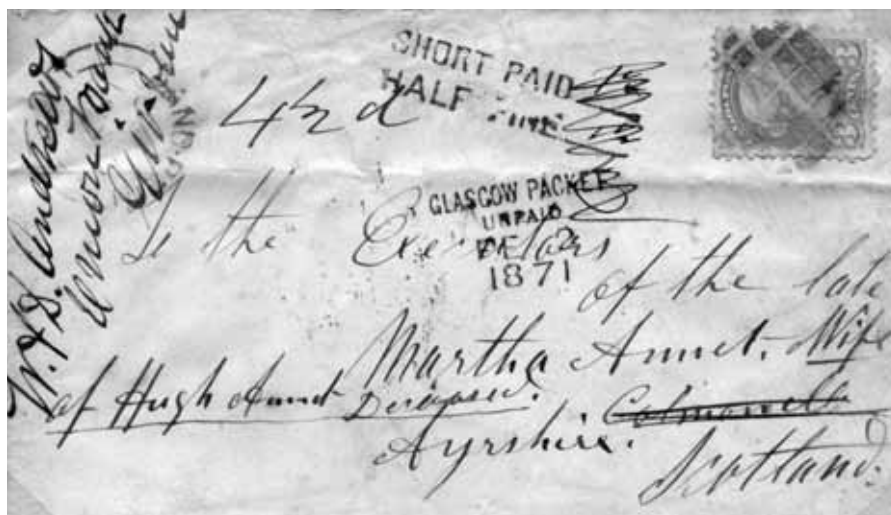 W. & S. Andrews
Union Bank
Girvan
SHORT PAID
HALF FINE
4½ d
GLASGOW PACKET
UNPAID
DE 2
1871
3
To the Executors
of the late
Martha Annet. Wife
of Hugh Annet Deceased.
Colmonell
Ayrshire.
Scotland.